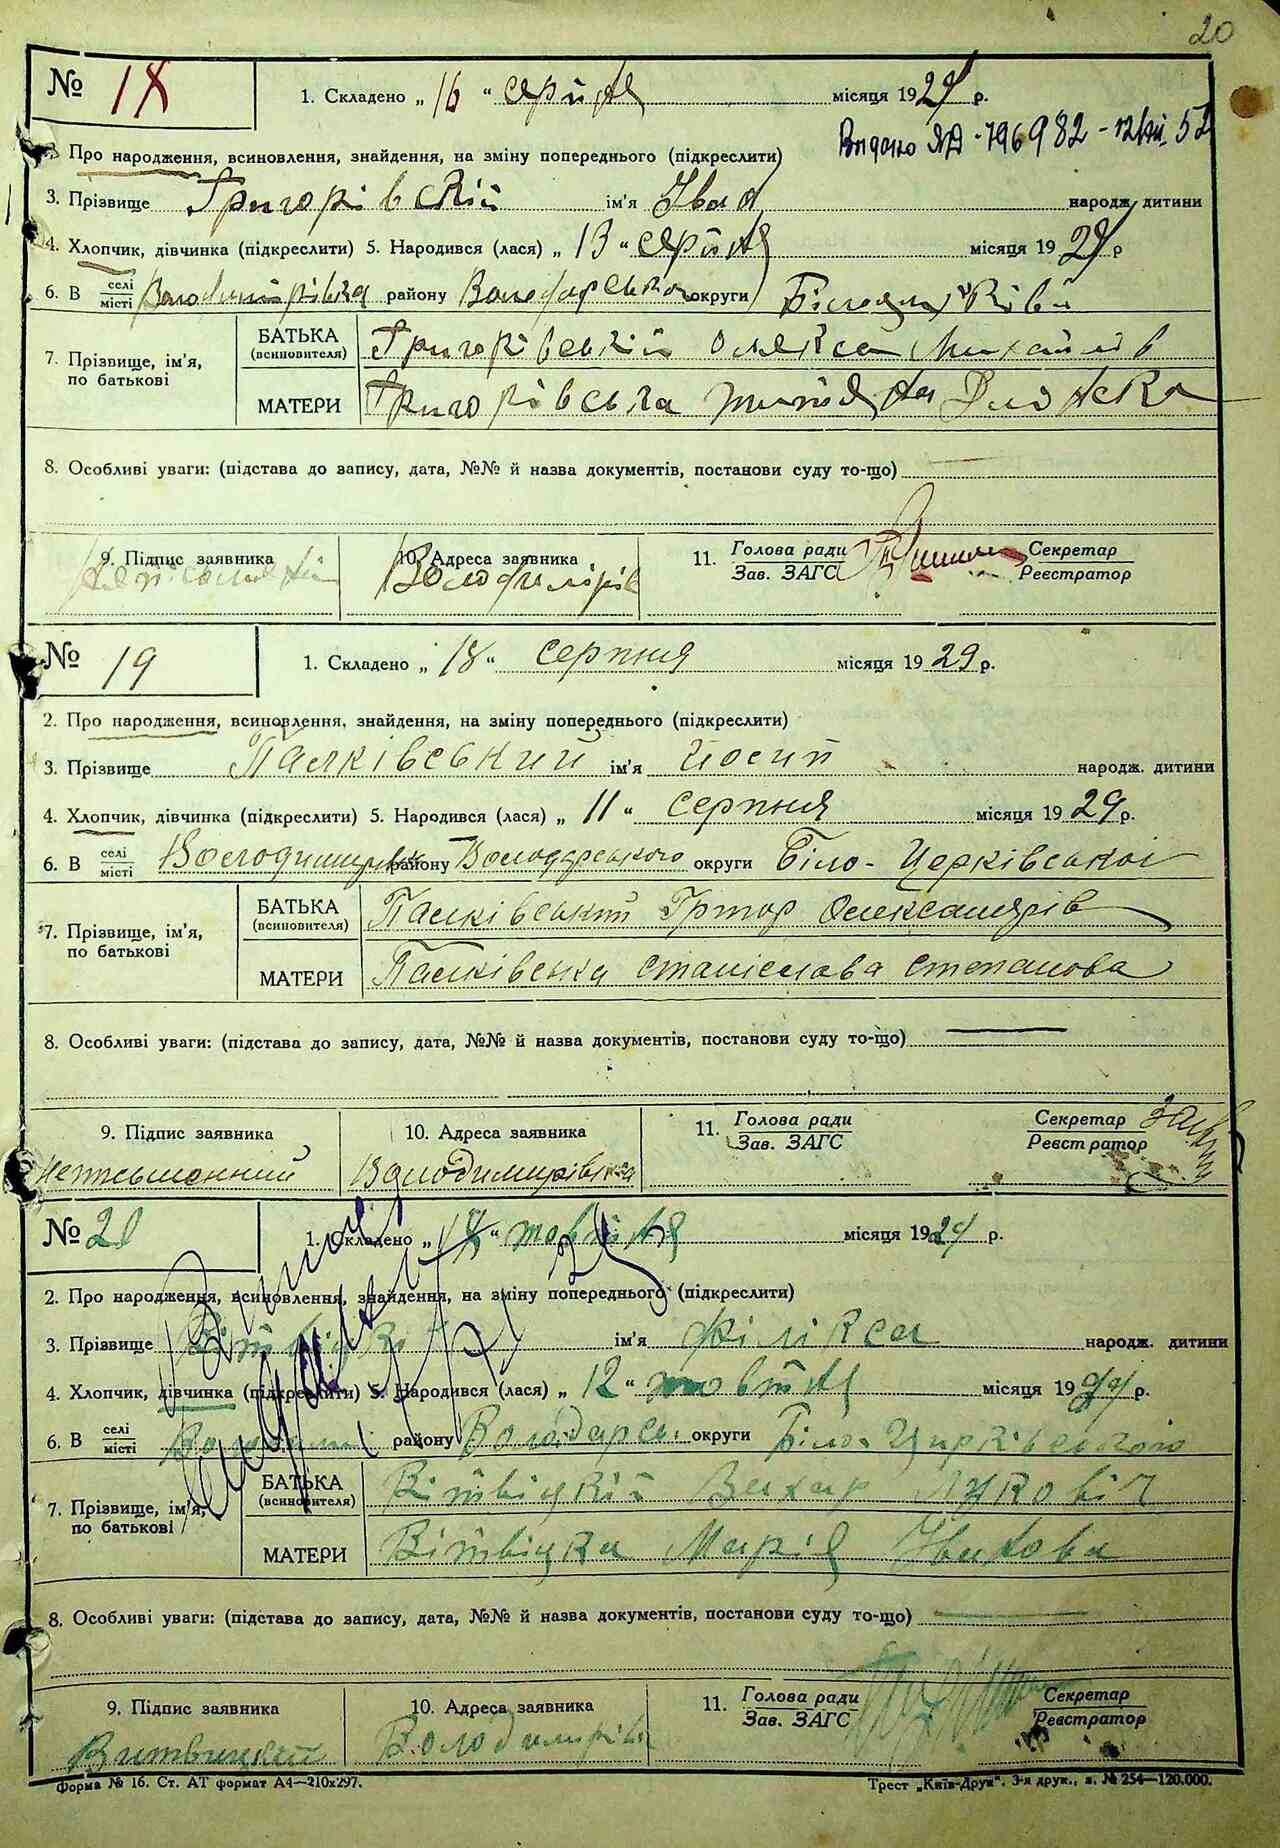 20
№ 18 1. Складено „ 16 “ серпня місяця 1929 р.
Видано ЯД - 796982 - 52
2. Про народження, всиновлення, знайдення, на зміну попереднього (підкреслити)
3. Прізвище Григорівский ім'я Іван народж. дитини
4. Хлопчик, дівчинка (підкреслити) 5. Народився (лася) „ 13 “ серпня місяця 1929 р
6. В селі/місті Володимирівка району Володарського округи
7. Прізвище, ім'я, по батькові
БАТЬКА (всиновителя) Григорівський Олекса Михайлів
МАТЕРИ Григорівська
8. Особливі уваги: (підстава до запису, дата, №№ й назва документів, постанови суду то-що)
9. Підпис заявника 10. Адреса заявника 11. Голова ради Секретар
Зав. ЗАГС Реєстратор
Володимирів
№ 19 1. Складено „ 18 “ серпня місяця 1929 р.
2. Про народження, всиновлення, знайдення, на зміну попереднього (підкреслити)
3. Прізвище Палківський ім'я Йосип народж. дитини
4. Хлопчик, дівчинка (підкреслити) 5. Народився (лася) „ 11 “ серпня місяця 1929 р.
6. В селі/місті Володимирівка району Володарського округи Біло-Церківської
7. Прізвище, ім'я, по батькові
БАТЬКА (всиновителя) Палківський Григор Олександрів
МАТЕРИ Палківська Станіслава Степанова
8. Особливі уваги: (підстава до запису, дата, №№ й назва документів, постанови суду то-що)
9. Підпис заявника 10. Адреса заявника 11. Голова ради Секретар
Зав. ЗАГС Реєстратор
неписьменний Володимирівка
№ 20 1. Складено „ 18 “ товтня місяця 1929 р.
2. Про народження, всиновлення, знайдення, на зміну попереднього (підкреслити)
3. Прізвище Вітвіцкі ім'я Філікса народж. дитини
4. Хлопчик, дівчинка (підкреслити) 5. Народився (лася) „ 12 “ жовтня місяця 1929 р.
6. В селі/місті Володими району Володарсь. округи Біло-Цирківського
7. Прізвище, ім'я, по батькові
БАТЬКА (всиновителя) Вітвіцкий Захар Лукович
МАТЕРИ Вітвіцка Марія Іванова
8. Особливі уваги: (підстава до запису, дата, №№ й назва документів, постанови суду то-що)
9. Підпис заявника 10. Адреса заявника 11. Голова ради Секретар
Зав. ЗАГС Реєстратор
Витвицкий Володимирівк
Форма № 16. Ст. АТ формат А4—210х297. Трест „Київ-Друк“. 3-я друк., з. № 254—120.000.